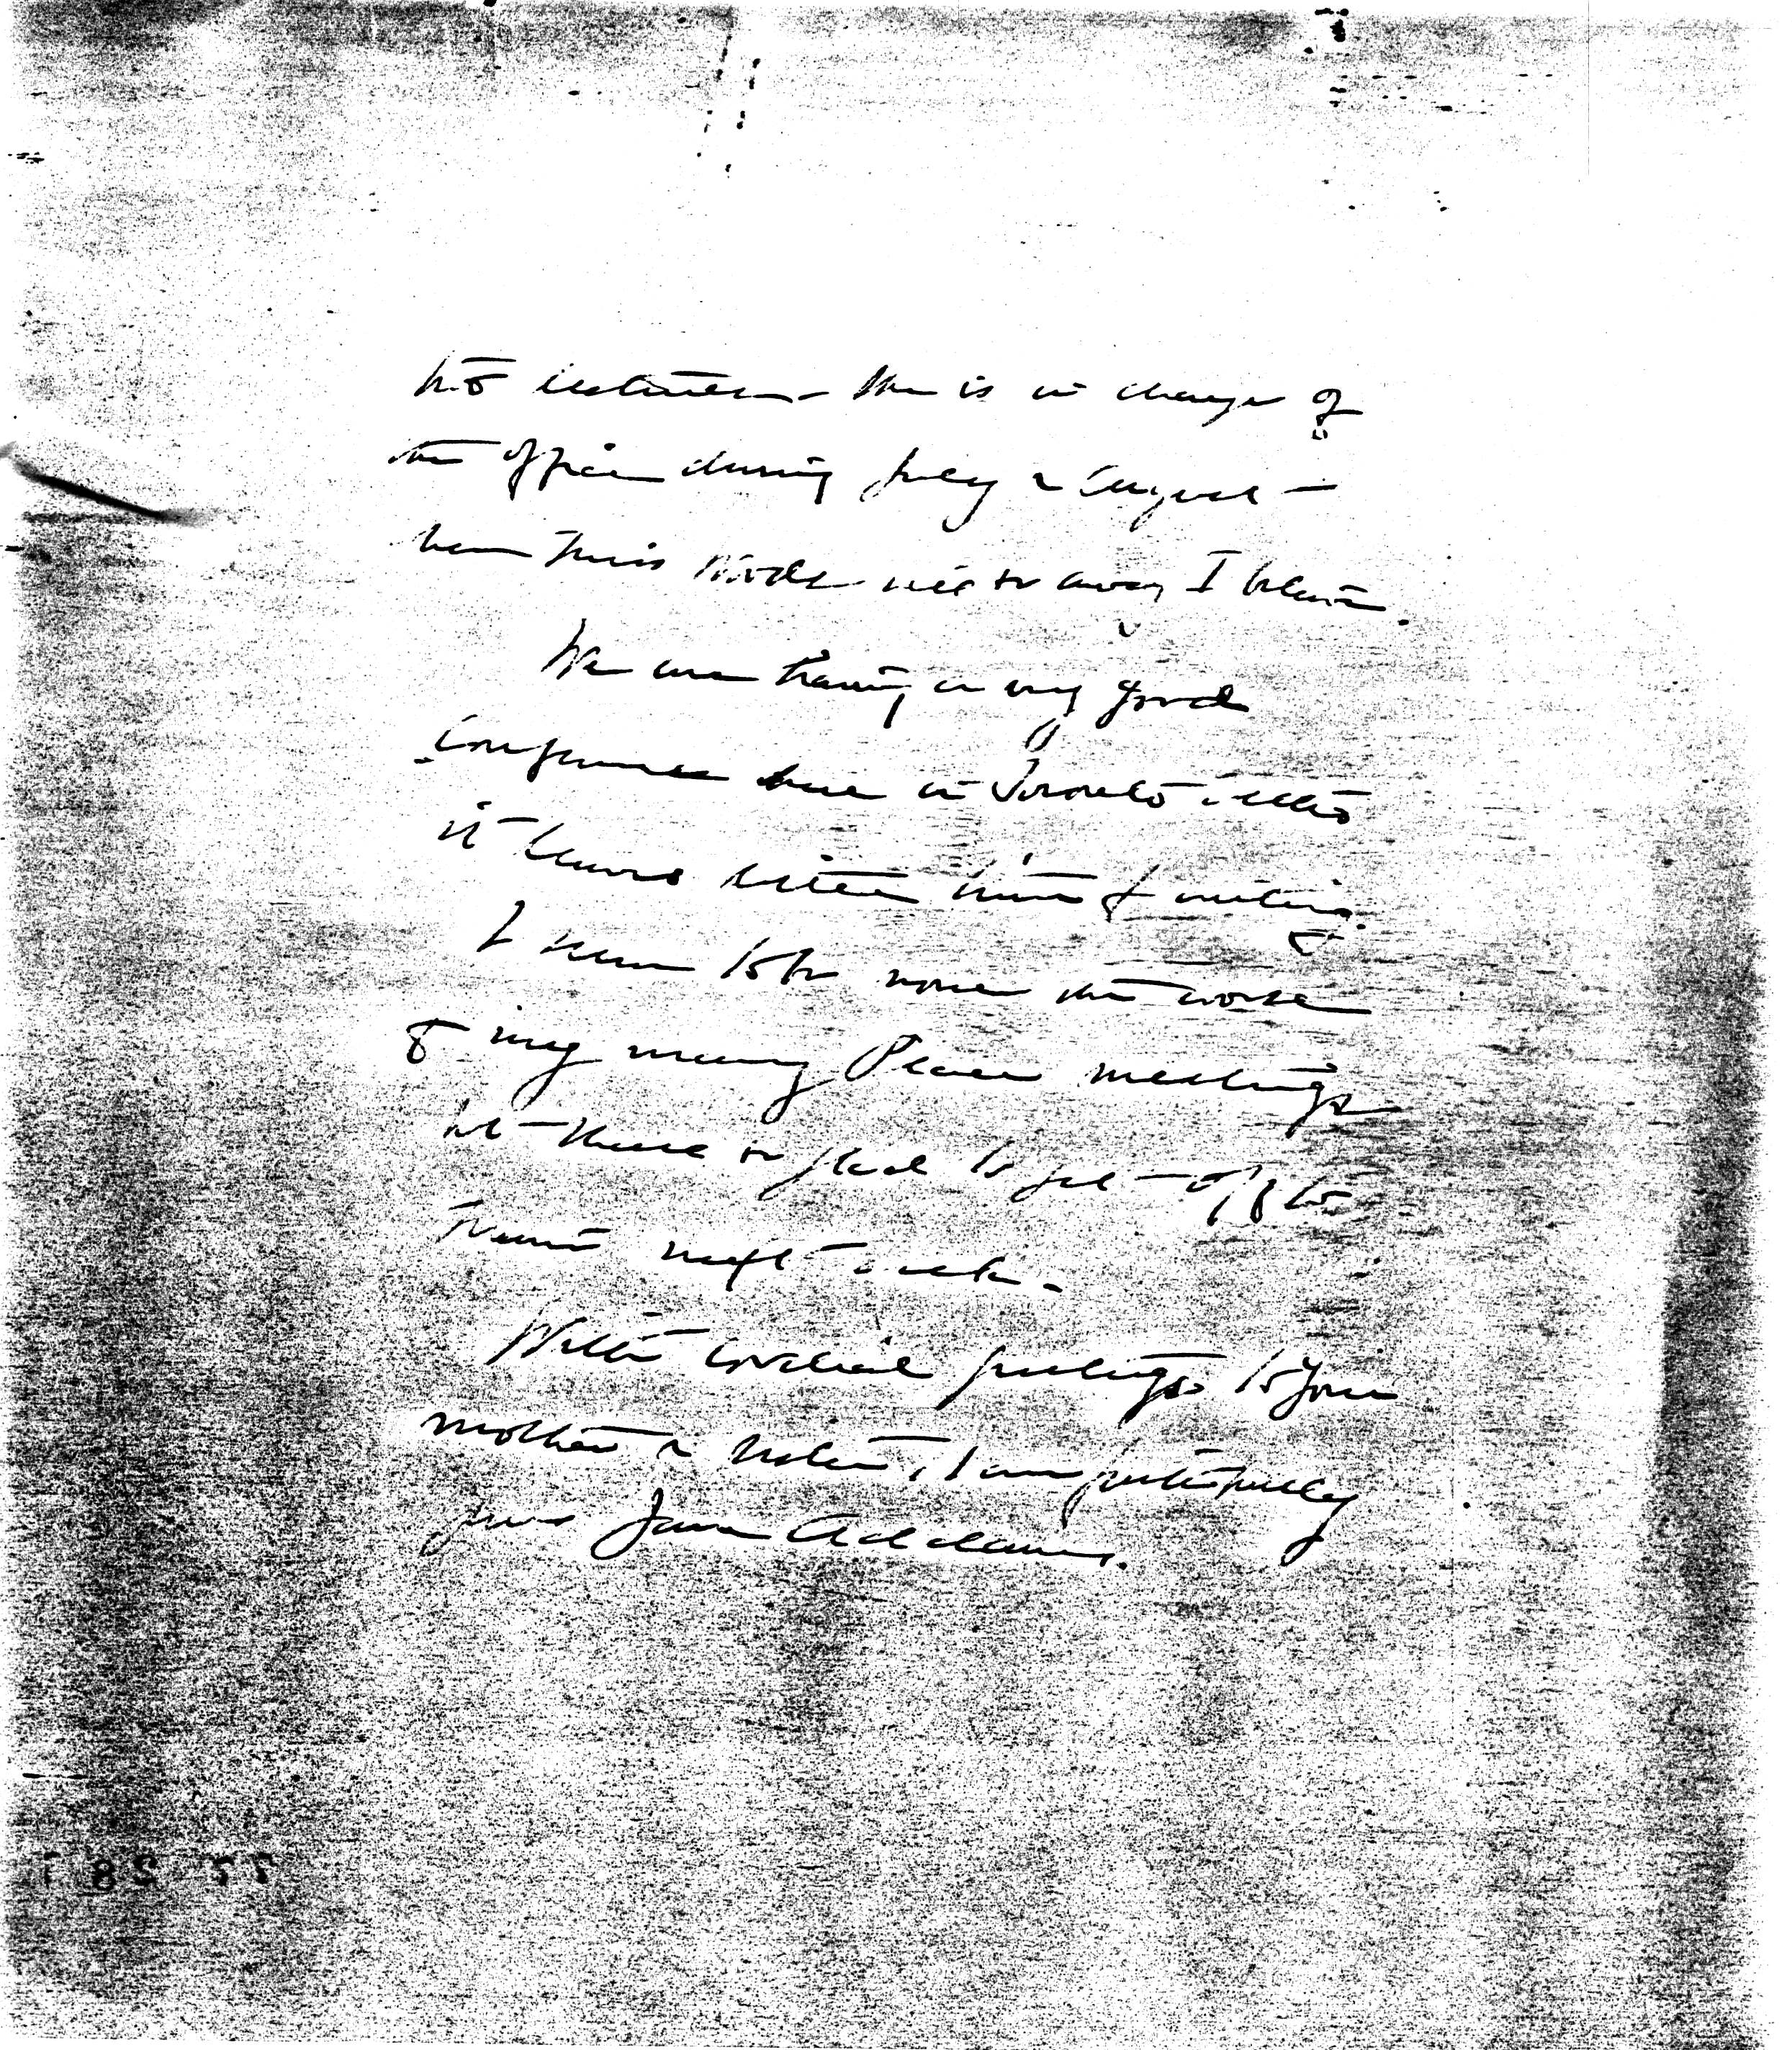 is in charge of
the office during July & August –
when Miss Woods will be away I believe.
We are having a very good
Conference here in Toronto
it leaves little time for writing.
I seem to be none the worse
of my many Peace meetings
but shall be glad to get off to
Maine next week –
With cordial greetings to your
mother & sister, I am faithfully
yours Jane Addams.